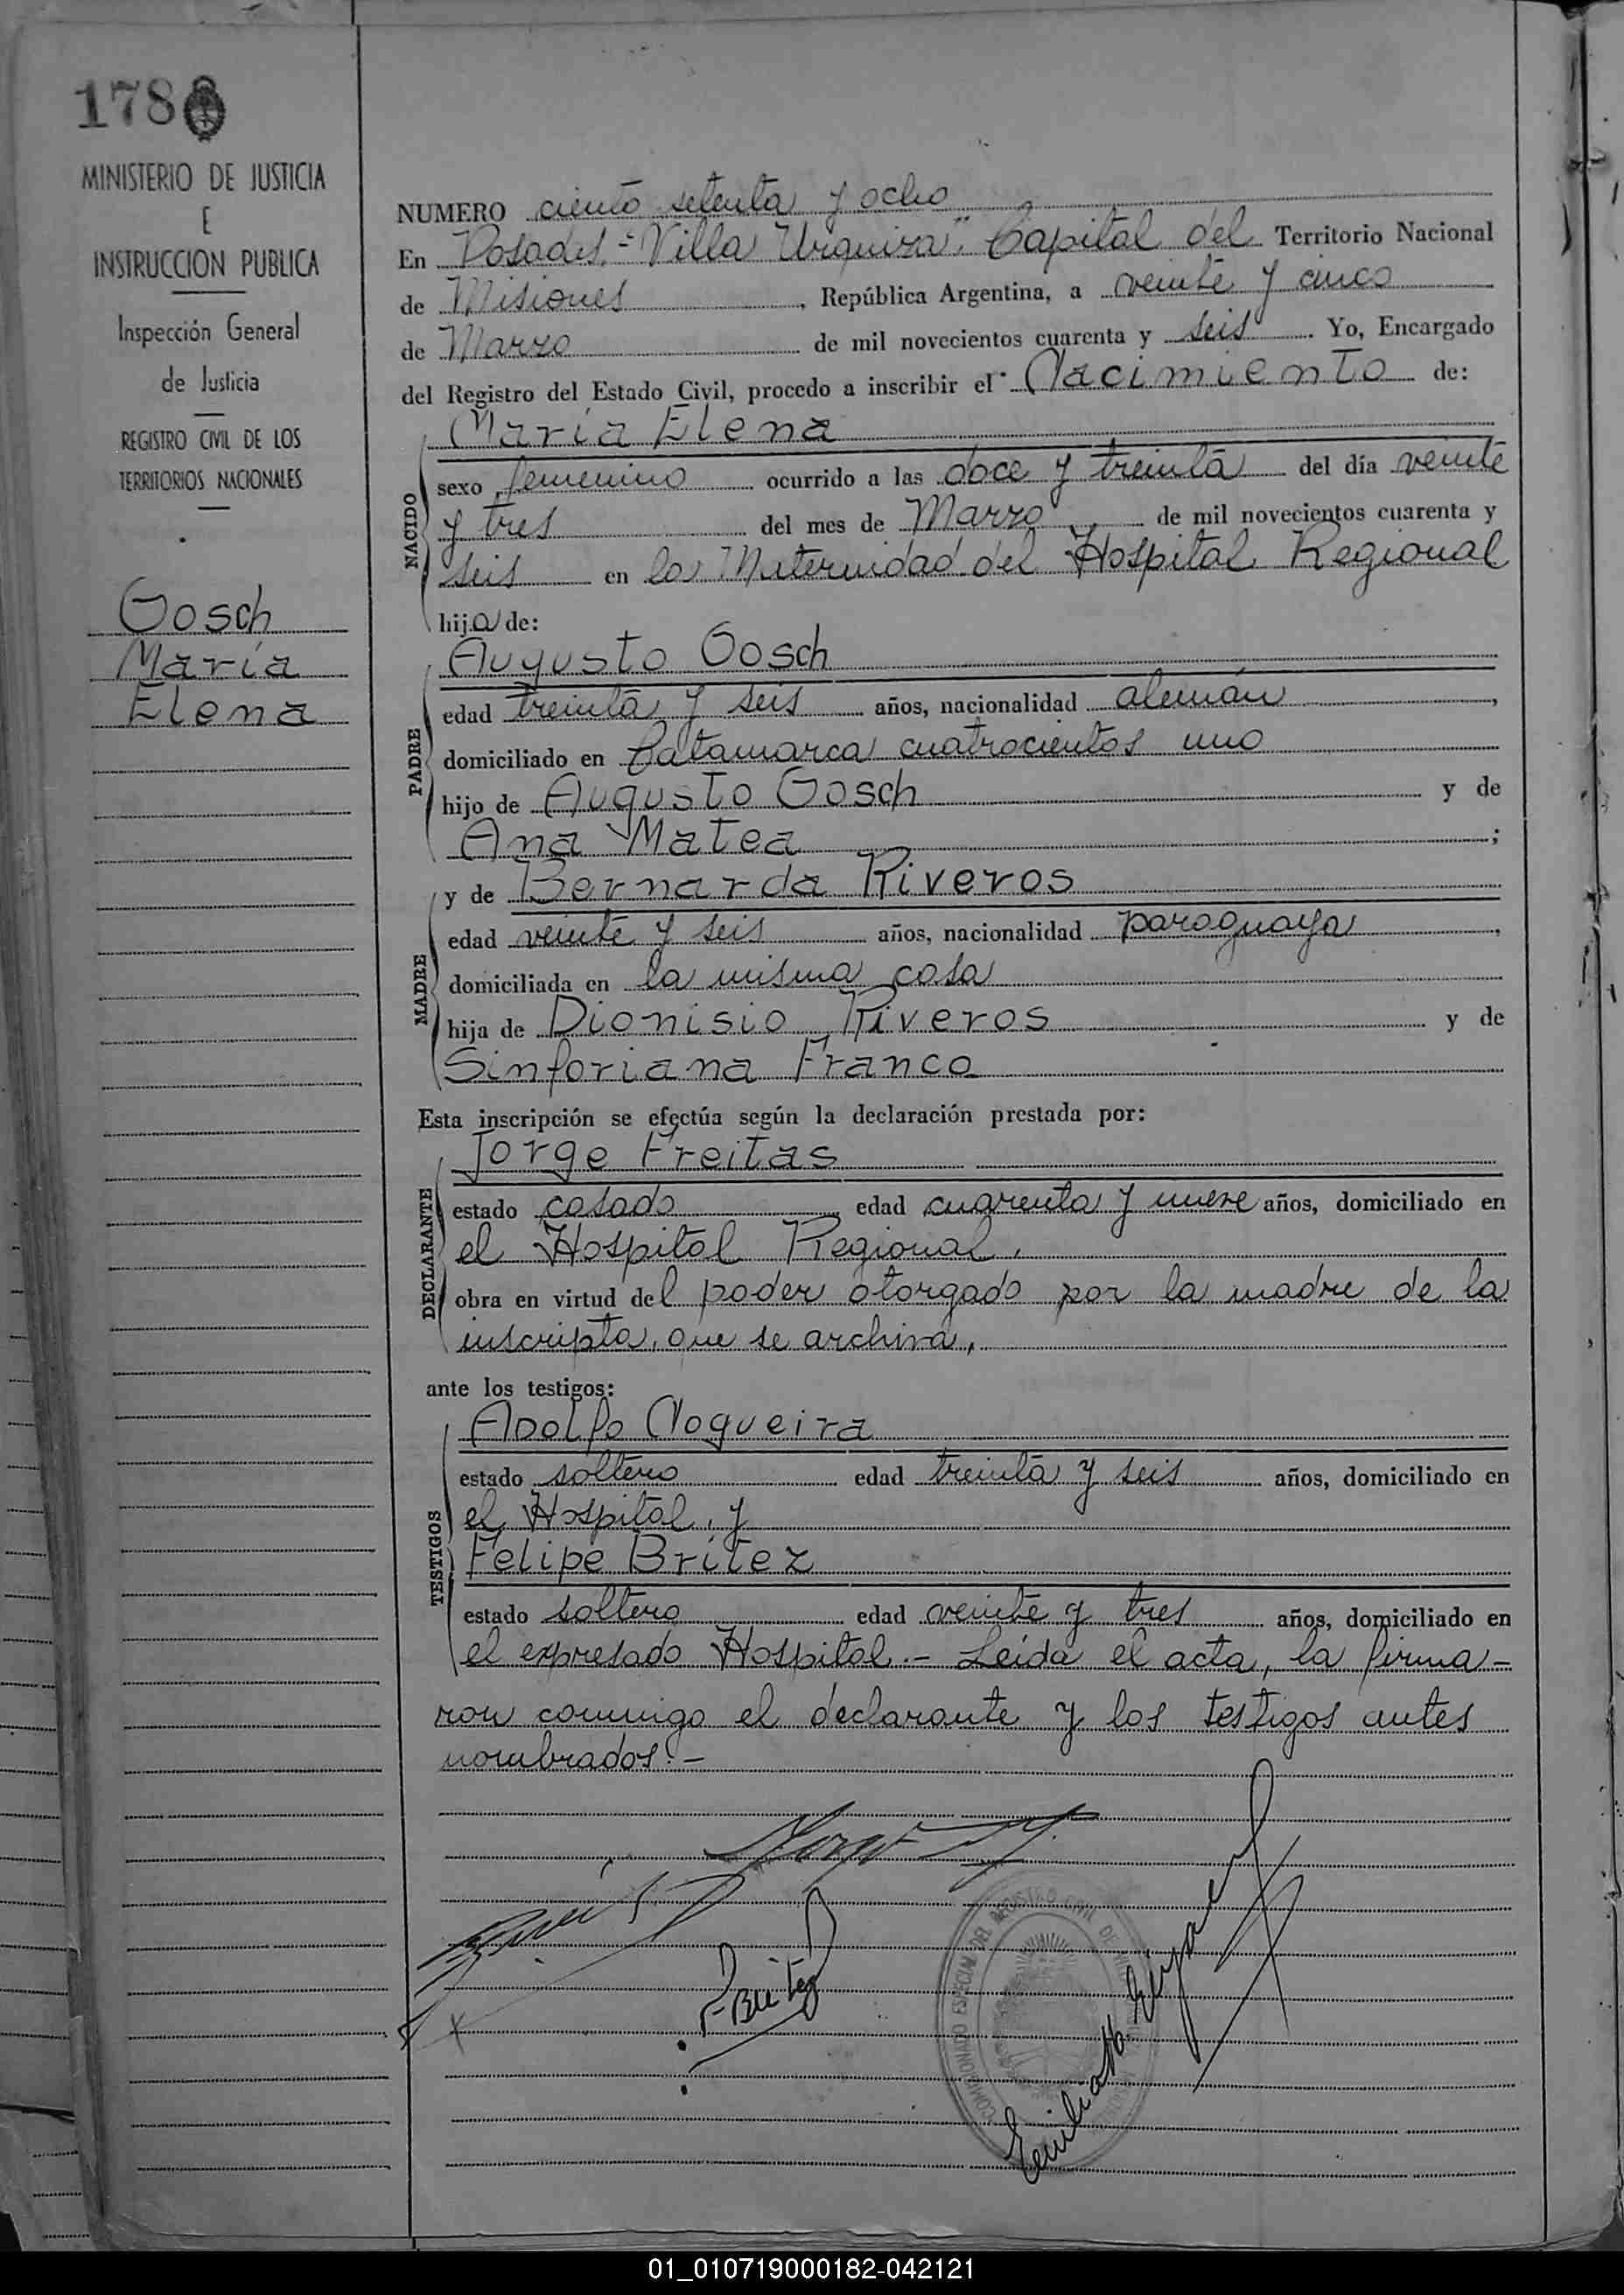 178
MINISTERIO DE JUSTICIA
E
INSTRUCCION PUBLICA
Inspección General
de Justicia
REGISTRO CIVIL DE LOS
TERRITORIOS NACIONALES
Gosch
María
Elena
NUMERO ciento setenta y ocho
En Posadas, "Villa Urquiza", Capital del Territorio Nacional
de Misiones, República Argentina, a veinte y cinco
de Marzo de mil novecientos cuarenta y seis. Yo, Encargado
del Registro del Estado Civil, procedo a inscribir el Nacimiento de:
María Elena
NACIDO
sexo femenino ocurrido a las doce y treinta del día veinte
y tres del mes de Marzo de mil novecientos cuarenta y
seis en la Maternidad del Hospital Regional
hija de:
PADRE
Augusto Gosch
edad treinta y seis años, nacionalidad alemán,
domiciliado en Catamarca cuatrocientos uno
hijo de Augusto Gosch y de
Ana Matea;
MADRE
y de Bernarda Riveros
edad veinte y seis años, nacionalidad paraguaya,
domiciliada en la misma casa
hija de Dionisio Riveros y de
Sinforiana Franco
Esta inscripción se efectúa según la declaración prestada por:
DECLARANTE
Jorge Freitas
estado casado edad cuarenta y nueve años, domiciliado en
el Hospital Regional,
obra en virtud del poder otorgado por la madre de la
inscripta, que se archiva,
ante los testigos:
TESTIGOS
Adolfo Nogueira
estado soltero edad treinta y seis años, domiciliado en
el Hospital, y
Felipe Britez
estado soltero edad veinte y tres años, domiciliado en
el expresado Hospital.- Leída el acta, la firma-
ron conmigo el declarante y los testigos antes
nombrados.-
Jorge
F Britez
COMISIONADO ESPECIAL DEL REGISTRO CIVIL DE
01_010719000182-042121